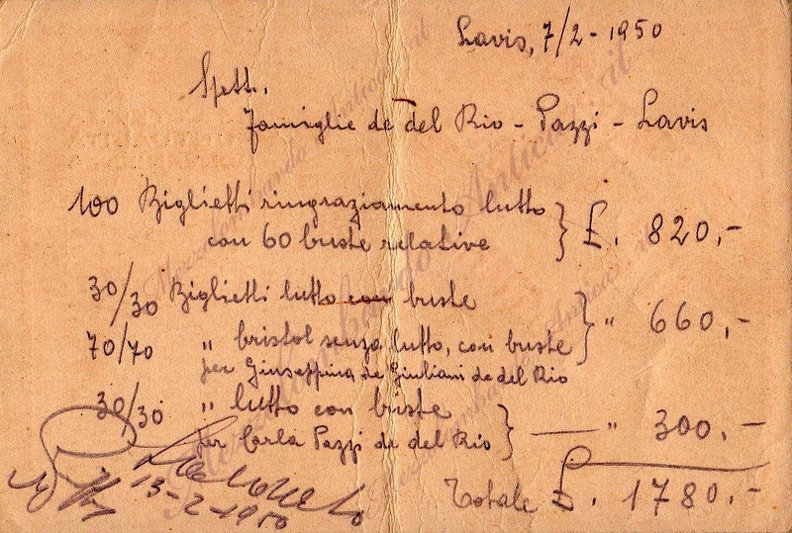 Lavis, 7/2-1950
Spett.
Famiglie de del Rio - Pazzi - Lavis
100 Biglietti ringraziamento lutto
con 60 buste relative } £. 820,-
30/30 Biglietti lutto con buste
70/70 " bristol senza lutto, con buste } " 660,-
per Giuseppina de Giuliani de del Rio
30/30 " lutto con buste
per Carla Pazzi de del Rio } — " 300.-
13-2-1950
Totale £. 1780.-